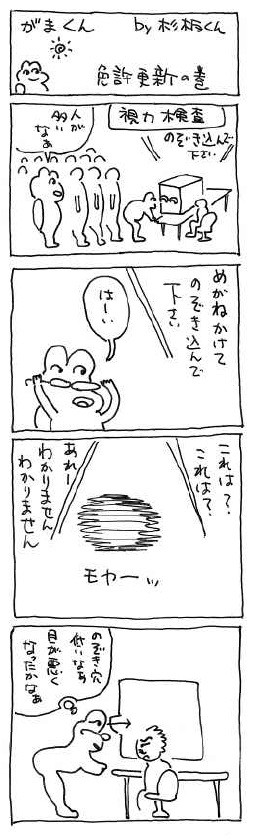 がまくん
by 杉板くん
免許更新の巻
視力検査
のぞき込んで
下さい
人が
多い
なぁ
めがねかけて
のぞき込んで
下さい
はーい
これは?
これは?
あれー
わかりません
わかりません
モヤーッ
のぞき穴
低いなぁ
目が悪く
なったかなぁ